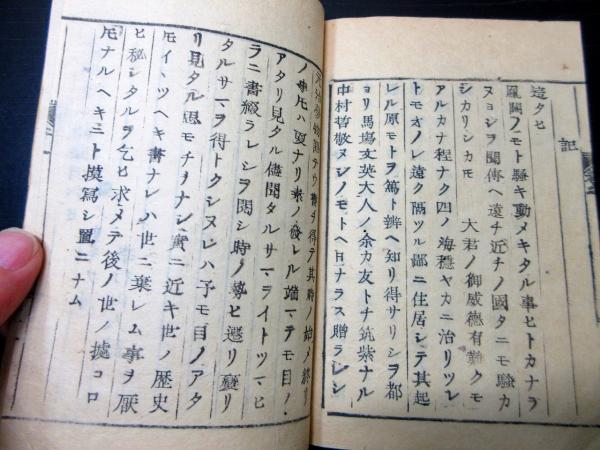 記
這タヒ
鳳闕ノモト騒キ動メキタル事ヒトカナラ
ヌヨシヲ聞傳ヘ遠チ近チノ國タニモ騒カ
シカリシカモ 大君ノ御威德有難クモ
アルカナ程ナク四ノ海穩ヤカニ治リツレ
トモオノレ遠ク隔ツル鄙ニ住居シテ其起
レル原モトヲ篤ト辨ヘ知リ得サリシヲ都
ヨリ馬塲文英大人ノ余カ友トナ筑紫ナル
中村哲敬ヌシノモトヘ日ナラス贈ラレシ
テウ書チ得テ其時ノ始メ終リ
ノサモハ更ナリ素ノ發レル端マテモ目ノ
アタリ見タル儘聞タルサマライトツマヒ
ラニ書綴ラレシヲ閲シ時ノ勢ヒ遷リ變リ
タルサマヲ得トクシヌレハ予モ目ノアタ
リ見タル思モチナシ實ニ近キ世ノ歴史
モイツヘキ書ナレハ世ニ棄レム事ヲ厭
ヒ秘シタルヲ乞ヒ求メテ後ノ世ノ據コロ
モナルヘキニト摸寫シ置ニナム